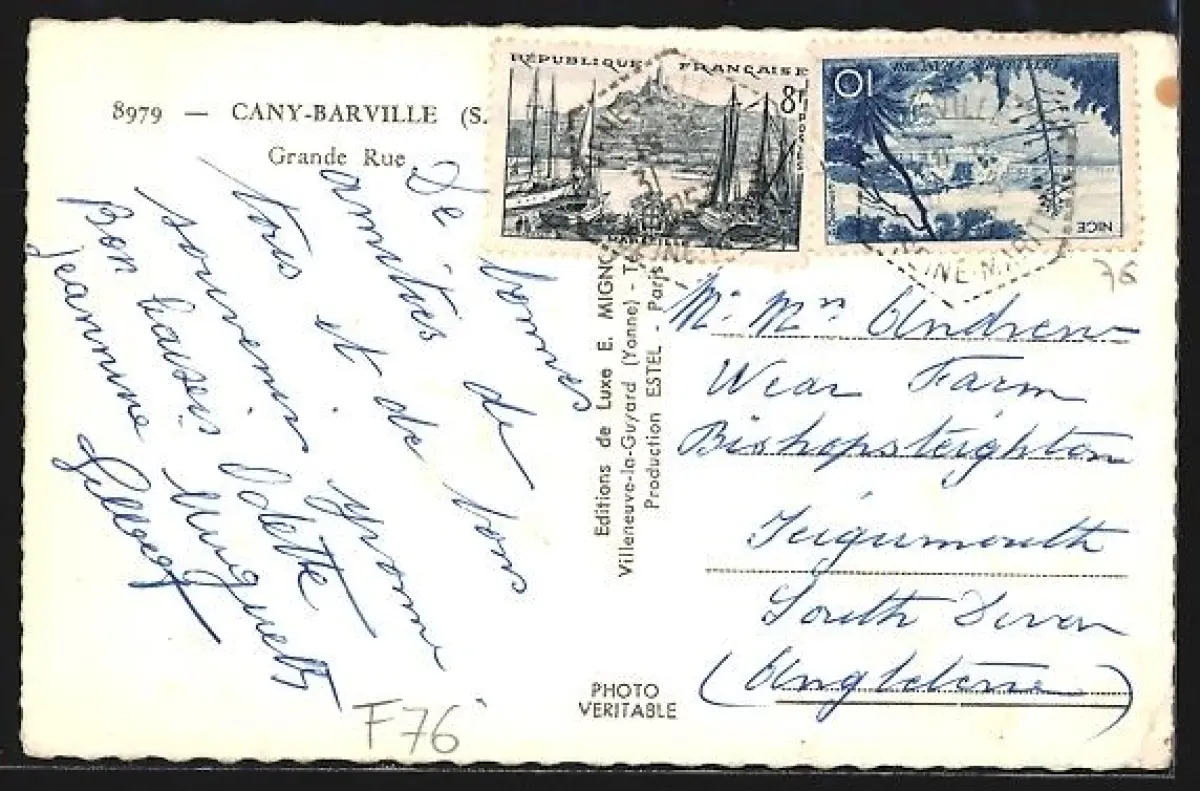 8979 — CANY-BARVILLE (S.
Grande Rue
De bonnes
amitiés de
tous et de bons
souvenirs
Bon baiser
Jeannine
RÉPUBLIQUE FRANÇAISE
8f
POSTES
MARSEILLE
10
NICE
76
Editions de Luxe E. MIGNO
Villeneuve-la-Guyard (Yonne) - T
Production ESTEL - Paris
Mr. Mrs Andrew
Wear Farm
Bishopsteighton
Teignmouth
South Devon
(Angleterre)
PHOTO
VERITABLE
F76